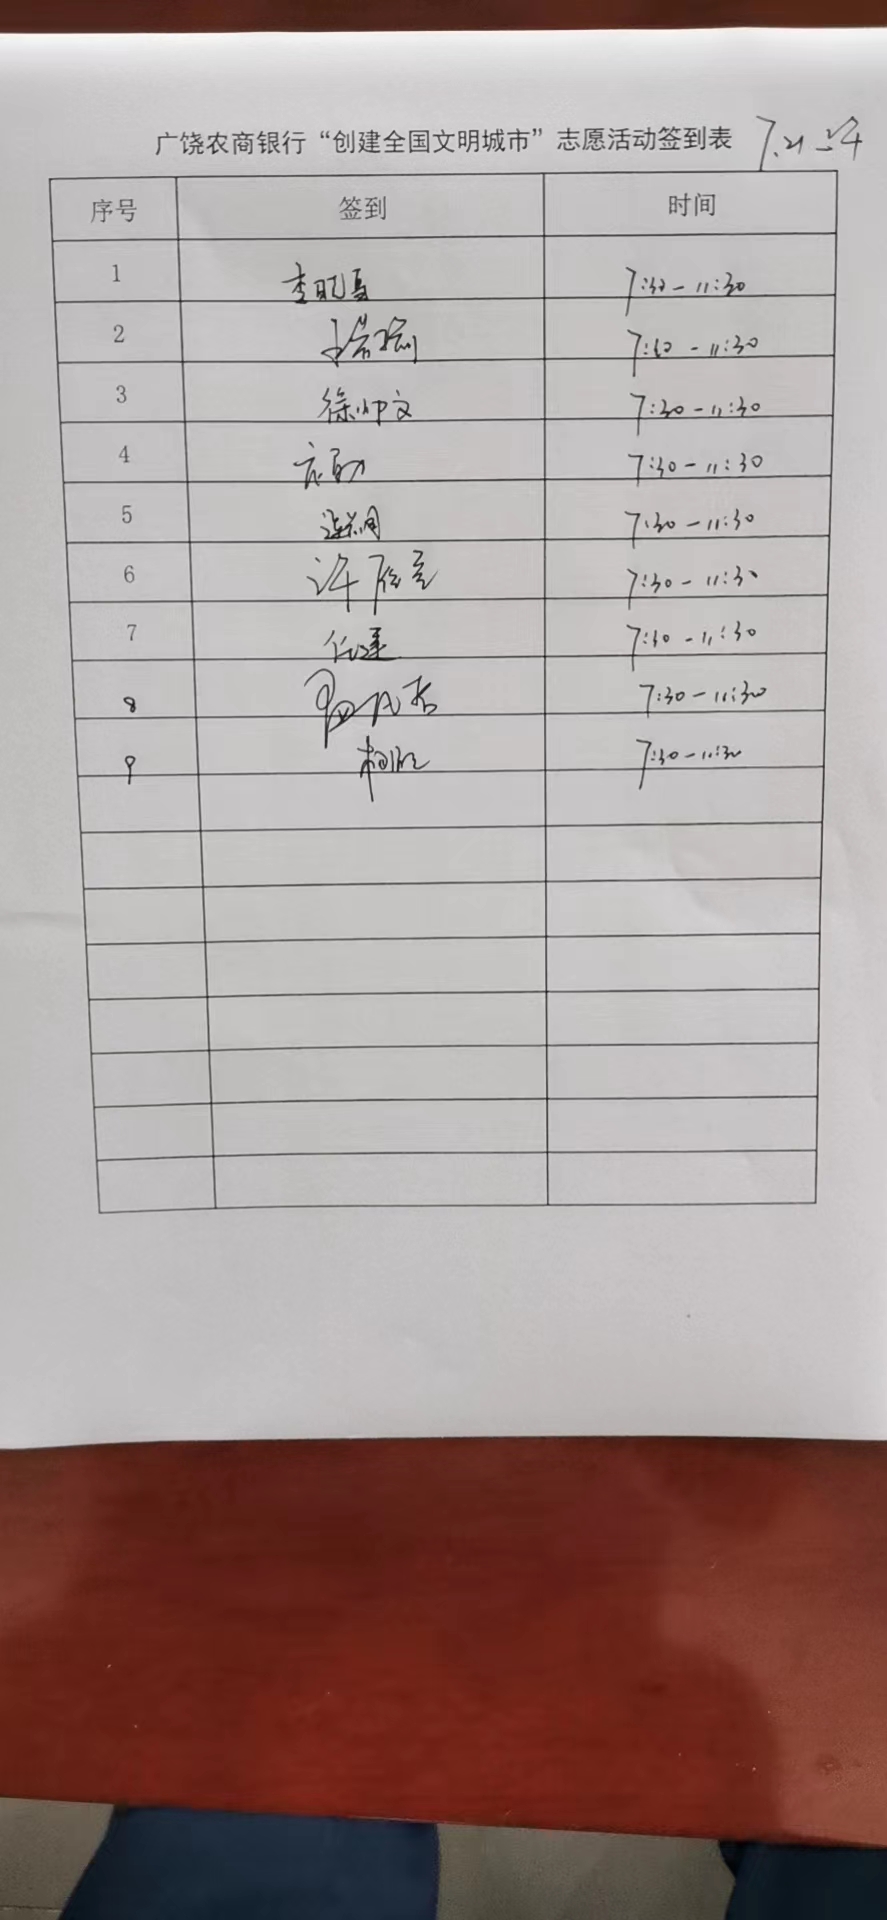 广饶农商银行“创建全国文明城市”志愿活动签到表 7.21
序号 签到 时间
1 7:30-11:30
2 7:30-11:30
3 徐帅文 7:30-11:30
4 7:30-11:30
5 7:30-11:30
6 许 7:30-11:30
7 任建 7:30-11:30
8 7:30-11:30
9 7:30-11:30